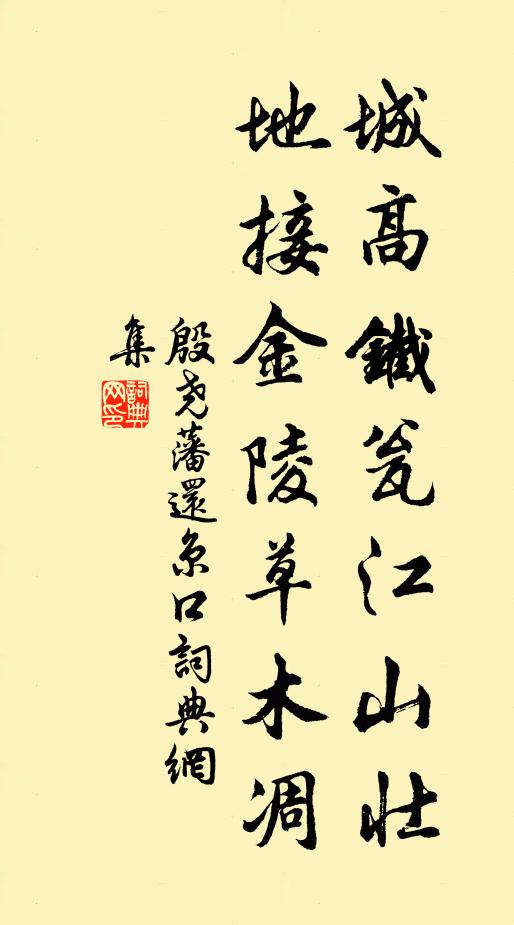 城高鐵瓮江山壮
地接金陵草木凋
殷尧藩還京口詞典網
集
詞典网印